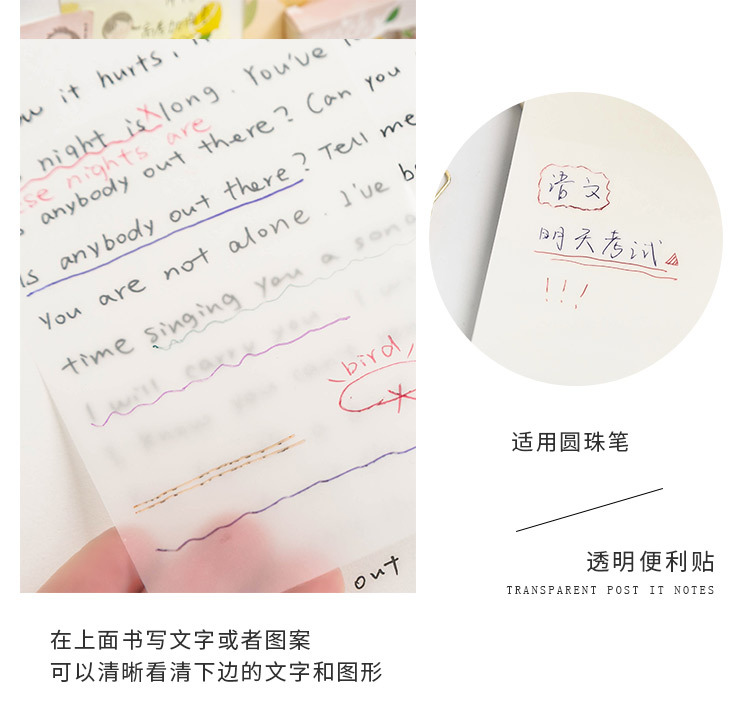 it hurts,
night is long. You've
nights are
anybody out there? Can you
is anybody out there? Tell me
You are not alone. I've
time singing you a song
I will carry you
I know you
bird
out
语文
明天考试
!!!
适用圆珠笔
透明便利贴
TRANSPARENT POST IT NOTES
在上面书写文字或者图案
可以清晰看清下边的文字和图形